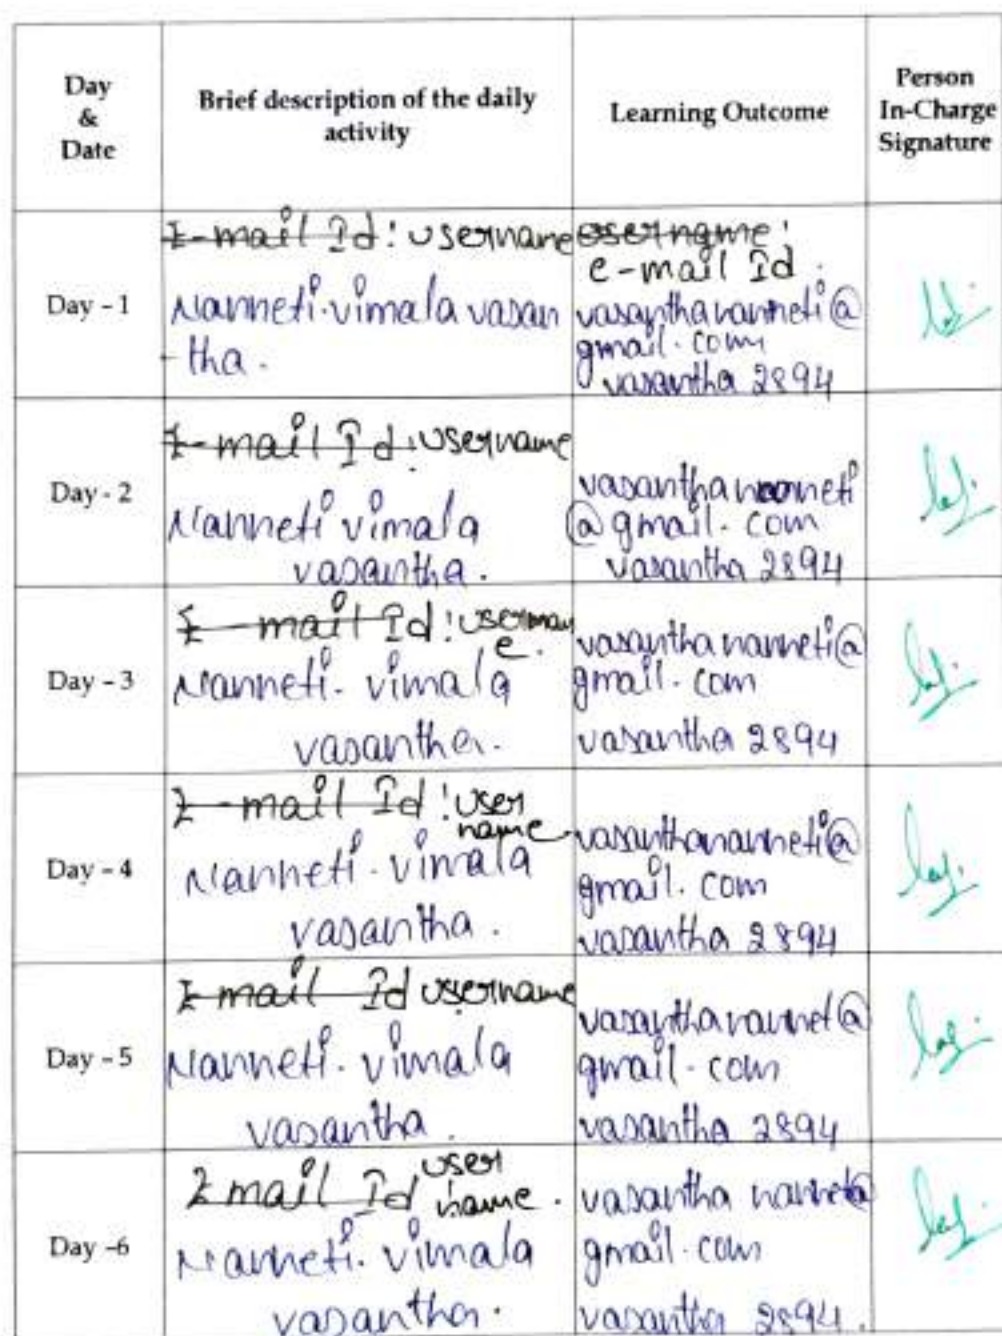 Day
&
Date
Brief description of the daily
activity
Learning Outcome
Person
In-Charge
Signature
Day - 1
E-mail Id: username
Nanneti.vimala vasan
-tha.
username:
e-mail Id.
vasanthananneti@
gmail.com
vasantha 2894
Day - 2
E-mail Id: username
Nanneti vimala
vasantha.
vasanthananneti
@gmail.com
vasantha 2894
Day - 3
E-mail Id: usernam
e.
Nanneti. vimala
vasantha.
vasanthananneti@
gmail.com
vasantha 2894
Day - 4
E-mail Id: user
name
Nanneti. vimala
vasantha.
vasanthananneti@
gmail.com
vasantha 2894
Day - 5
E-mail Id username
Nanneti. vimala
vasantha.
vasanthanannet@
gmail.com
vasantha 2894
Day -6
E mail Id user
name.
Nanneti. vimala
vasantha.
vasantha nannet@
gmail.com
vasantha 2894.